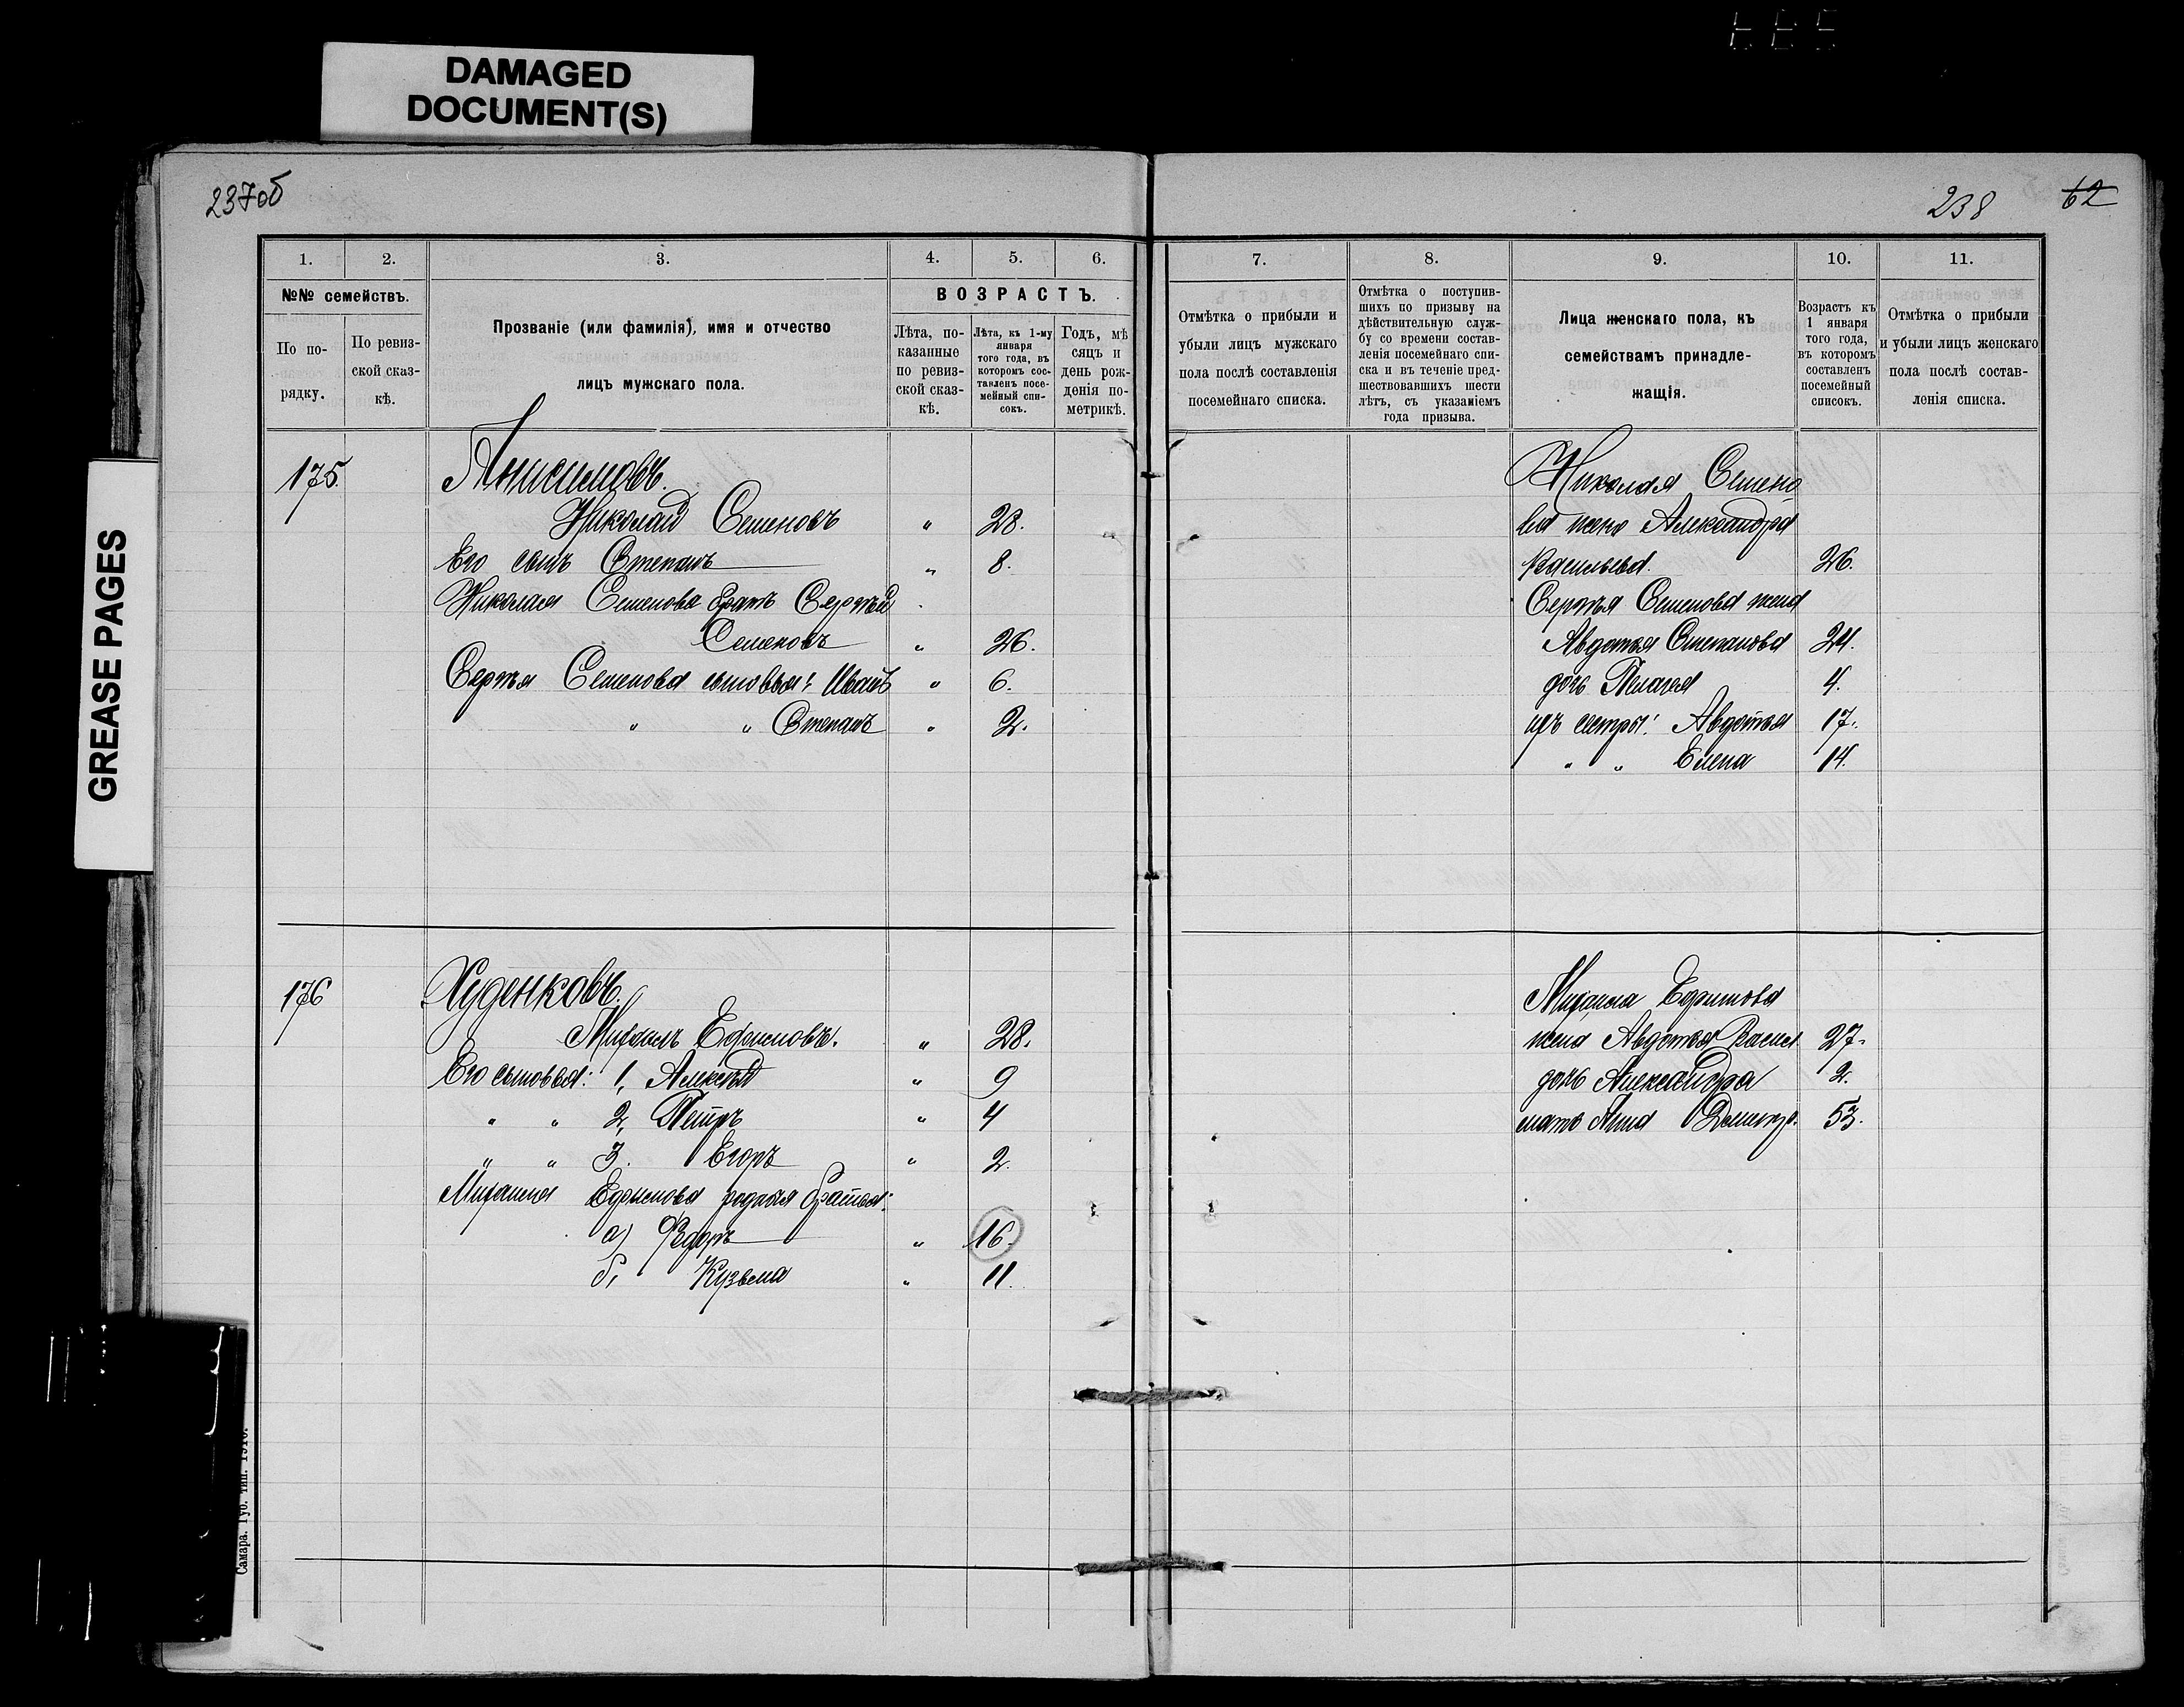 DAMAGED
DOCUMENT(S)
GREASE PAGES
237об
238 62
1. 2. 3. 4. 5. 6.
№№ семействъ.
По по-
рядку.
По ревиз-
ской сказ-
кѣ.
Прозваніе (или фамилія), имя и отчество
лицъ мужскаго пола.
ВОЗРАСТЪ.
Лѣта, по-
казанные
по ревиз-
ской сказ-
кѣ.
Лѣта, къ 1-му
января
того года, въ
которомъ сос-
тавленъ посе-
мейный спи-
сокъ.
Годъ, мѣ
сяцъ и
день рож-
денія по-
метрикѣ.
175. Анисимовъ.
Николай Семеновъ " 28.
Его сынъ Степанъ " 8.
Николая Семенова братъ Сергѣй
Семеновъ " 26.
Сергѣя Семенова сыновья: Иванъ " 6.
" " Степанъ " 2.
176 Худенковъ.
Михаилъ Ефимовъ. " 28.
Его сыновья: 1, Алексѣй " 9
" " 2, Петръ " 4
" " 3. Егоръ " 2.
Михаила Ефимова родныя братья:
а) Федоръ " 16.
б, Кузьма " 11.
Самара. Губ. Тип. 1910.
7. 8. 9. 10. 11.
Отмѣтка о прибыли и
убыли лицъ мужскаго
пола послѣ составленія
посемейнаго списка.
Отмѣтка о поступив-
шихъ по призыву на
дѣйствительную служ-
бу со времени состав-
ленія посемейнаго спи-
ска и въ теченіе пред-
шествовавшихъ шести
лѣтъ, съ указаніемъ
года призыва.
Лица женскаго пола, къ
семействамъ принадле-
жащія.
Возрастъ къ
1 января
того года,
въ которомъ
составленъ
посемейный
списокъ.
Отмѣтка о прибыли
и убыли лицъ женскаго
пола послѣ состав-
ленія списка.
Николая Семено
ва жена Александра
Васильева. 26.
Сергѣя Семенова жена
Авдотья Степанова 24.
дочь Пелагея 4.
ихъ сестры: Авдотья 17.
" " Елена 14.
Михаила Ефимова
жена Авдотья Васил. 27.
дочь Александра 2.
мать Анна 53.